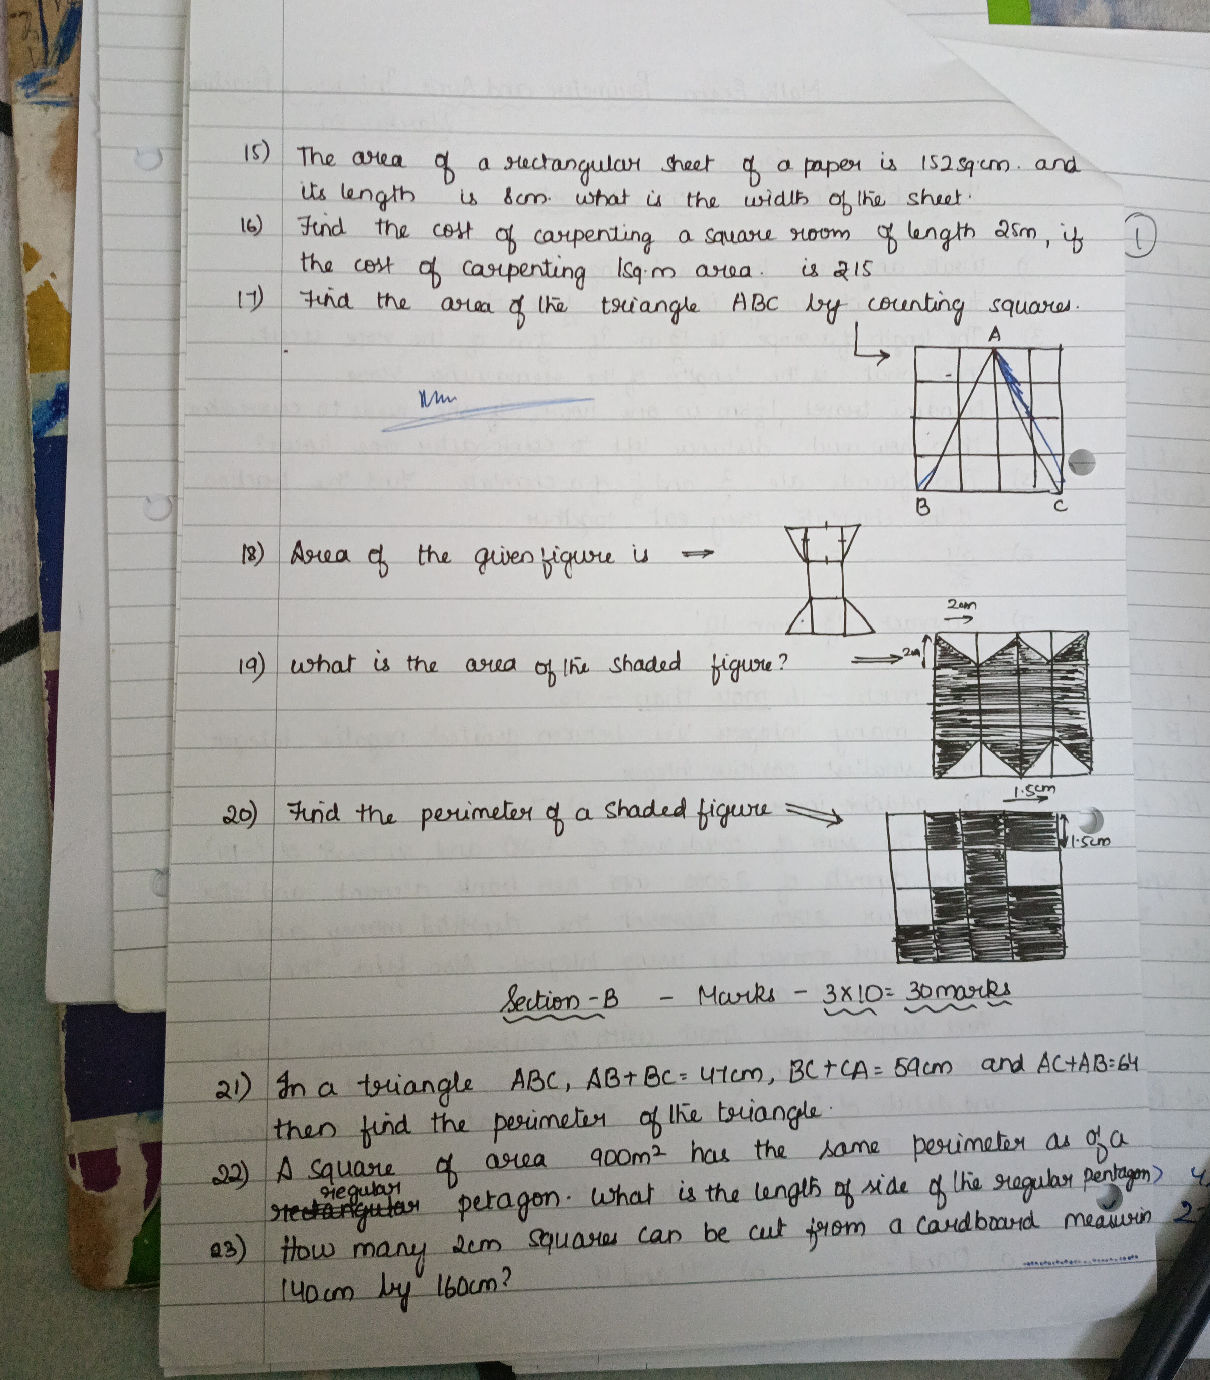 15) The area of a rectangular sheet of a paper is 152sq.cm. and
its length is 8cm. what is the width of the sheet.
16) Find the cost of carpenting a square room of length 25m, if
the cost of carpenting 1sq.m area. is ₹15
17) Find the area of the triangle ABC by counting squares.
1
A
B C
18) Area of the given figure is
2cm
19) what is the area of the shaded figure?
20) Find the perimeter of a shaded figure
1.5cm
1.5cm
Section-B - Marks - 3x10= 30marks
21) In a triangle ABC, AB+BC= 47cm, BC+CA= 59cm and AC+AB=64
then find the perimeter of the triangle.
22) A square of area 900m² has the same perimeter as of a
regular
petagon. What is the length of side of the regular pentagon)
23) How many 2cm squares can be cut from a cardboard measurin
140cm by 160cm?